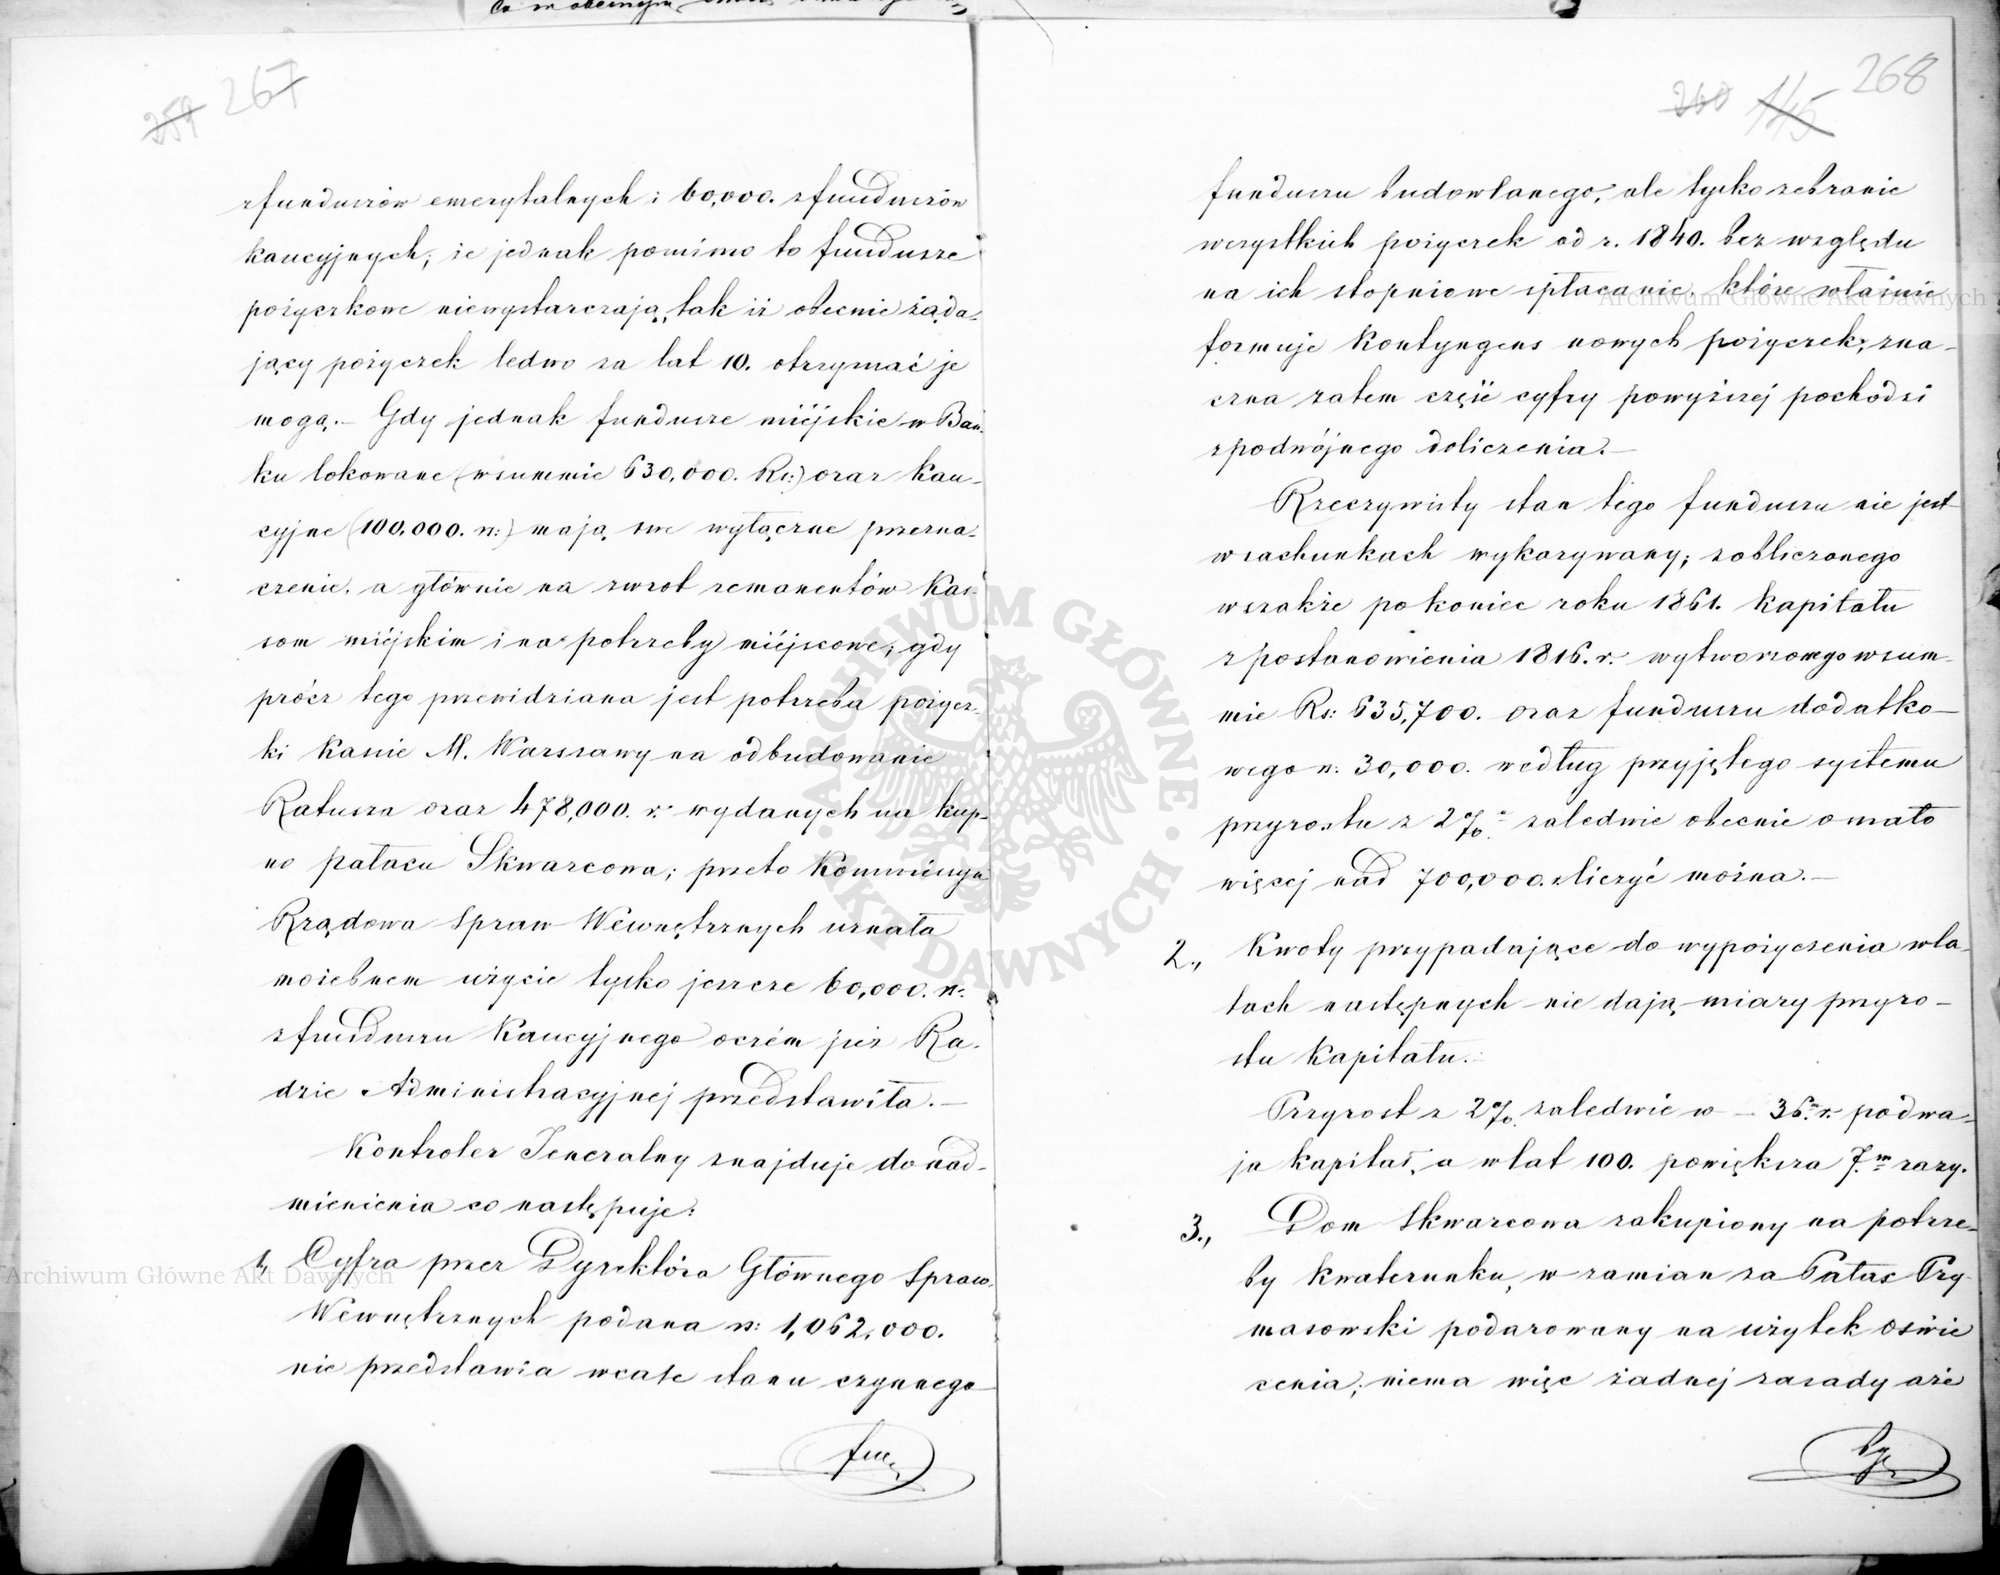 259 267
z funduszów emerytalnych i 60,000. z funduszów
kaucyjnych; że jednak pomimo to fundusze
pożyczkowe niewystarczają, tak iż obecnie żąda-
jący pożyczek ledwo za lat 10. otrzymać je
mogą. — Gdy jednak fundusze miéjskie w Ban-
ku lokowane (w summie 630,000. Rs:) oraz kau-
cyjne (100,000. rs:) mają swe wyłączne przezna-
czenie, a głównie na zwrot remanentów Kas-
som miéjskim i na potrzeby miéjscowe; gdy
prócz tego przewidziana jest potrzeba pożycz-
ki Kassie M. Warszawy na odbudowanie
Ratusza oraz 478,000. r. wydanych na kup-
no pałacu Skwarcowa; przeto Kommissya
Rządowa Spraw Wewnętrznych uznała
możebnem użycie tylko jeszcze 60,000. rs.
z funduszu Kaucyjnego oczém już Ra-
dzie Administracyjnej przedstawiła. —
Kontroler Jeneralny znajduje do nad-
mienienia co następuje:
1, Cyfra przez Dyrektora Głównego Spraw
Wewnętrznych podana rs: 1,062,000.
nie przedstawia wcale stanu czynnego
260 145 268
funduszu budowlanego, ale tylko zebranie
wszystkich pożyczek od r. 1840. bez względu
na ich stopniowe spłacanie, które właśnie
formuje Kontyngens nowych pożyczek; zna-
czna zatem część cyfry powyższej pochodzi
z podwójnego doliczenia. —
Rzeczywisty stan tego funduszu nie jest
w rachunkach wykazywany; z obliczonego
wszakże po koniec roku 1861. Kapitału
z postanowienia 1816. r. wytworzonego w sum-
mie Rs: 635,700. oraz funduszu dodatko-
wego rs: 30,000. według przyjętego systemu
przyrostu z 2% zaledwie obecnie o mało
więcej nad 700,000. zliczyć można. —
2., Kwoty przypadające do wypożyczenia w la-
tach następnych nie dają miary przyro-
stu Kapitału.
Przyrost z 2% zaledwie w — 36. r. podwa-
ja kapitał, a w lat 100. powiększa 7.m razy.
3., Dom Skwarcowa zakupiony na potrze-
by kwaterunku, w zamian za Pałac Pry-
masowski podarowany na użytek oświe
cenia; niema więc żadnej zasady aże
Archiwum Główne Akt Dawnych
Archiwum Główne Akt Dawnych
ARCHIWUM GŁÓWNE AKT DAWNYCH